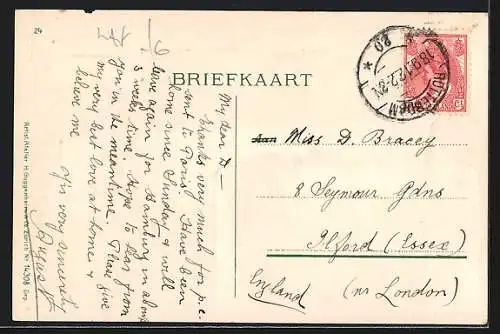 24
BRIEFKAART
ROTTERDAM
My dear D —
Thanks very much for p.c.
sent to Paris. Have been
home since Sunday & will
leave again for Hamburg in about
3 weeks time. Hope to hear from
you in the meantime. Please give
my very best love at home &
believe me
yrs very sincerely
August
Miss D. Bracey
8 Seymour Gdns
Ilford (Essex)
England (nr London)